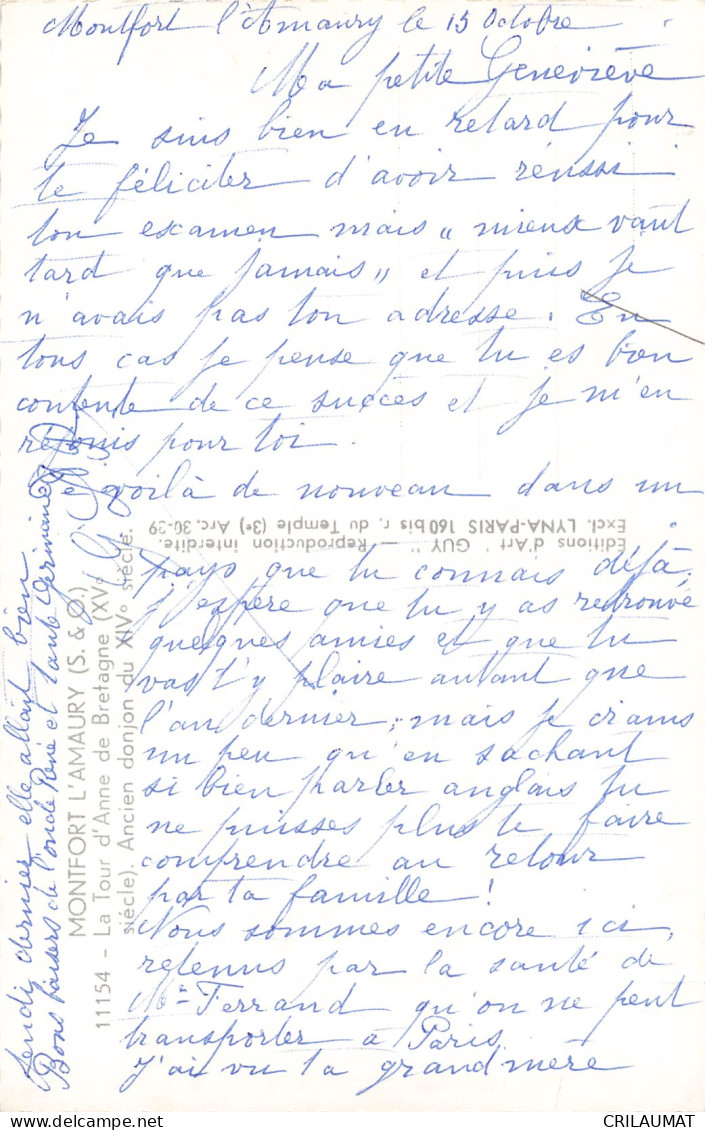 Montfort l'Amaury le 15 Octobre
Ma petite Geneviève
Je suis bien en retard pour
te féliciter d'avoir réussi
ton examen mais „ mieux vaut
tard que jamais „ et puis je
n'avais pas ton adresse. En
tous cas je pense que tu es bien
contente de ce succès et je m'en
réjouis pour toi.
voilà de nouveau dans un
pays que tu connais déjà,
j'espère que tu y as retrouvé
quelques amies et que tu
vas t'y plaire autant que
l'an dernier; mais je crains
un peu qu'en sachant
si bien parler anglais tu
ne puisses plus te faire
comprendre au retour
par ta famille !
Nous sommes encore ici,
retenus par la santé de
Mme Ferrand qu'on ne peut
transporter à Paris.
J'ai vu ta grand mère
Jeudi dernier elle allait bien
Bons baisers de l'oncle René et tante Germaine
MONTFORT L'AMAURY (S. & O.)
11154 - La Tour d'Anne de Bretagne (XVe
siècle). Ancien donjon du XIVe siècle.
Editions d'Art " GUY " — Reproduction interdite.
Excl. LYNA-PARIS 160 bis r. du Temple (3e) Arc. 30-39
CRILAUMAT